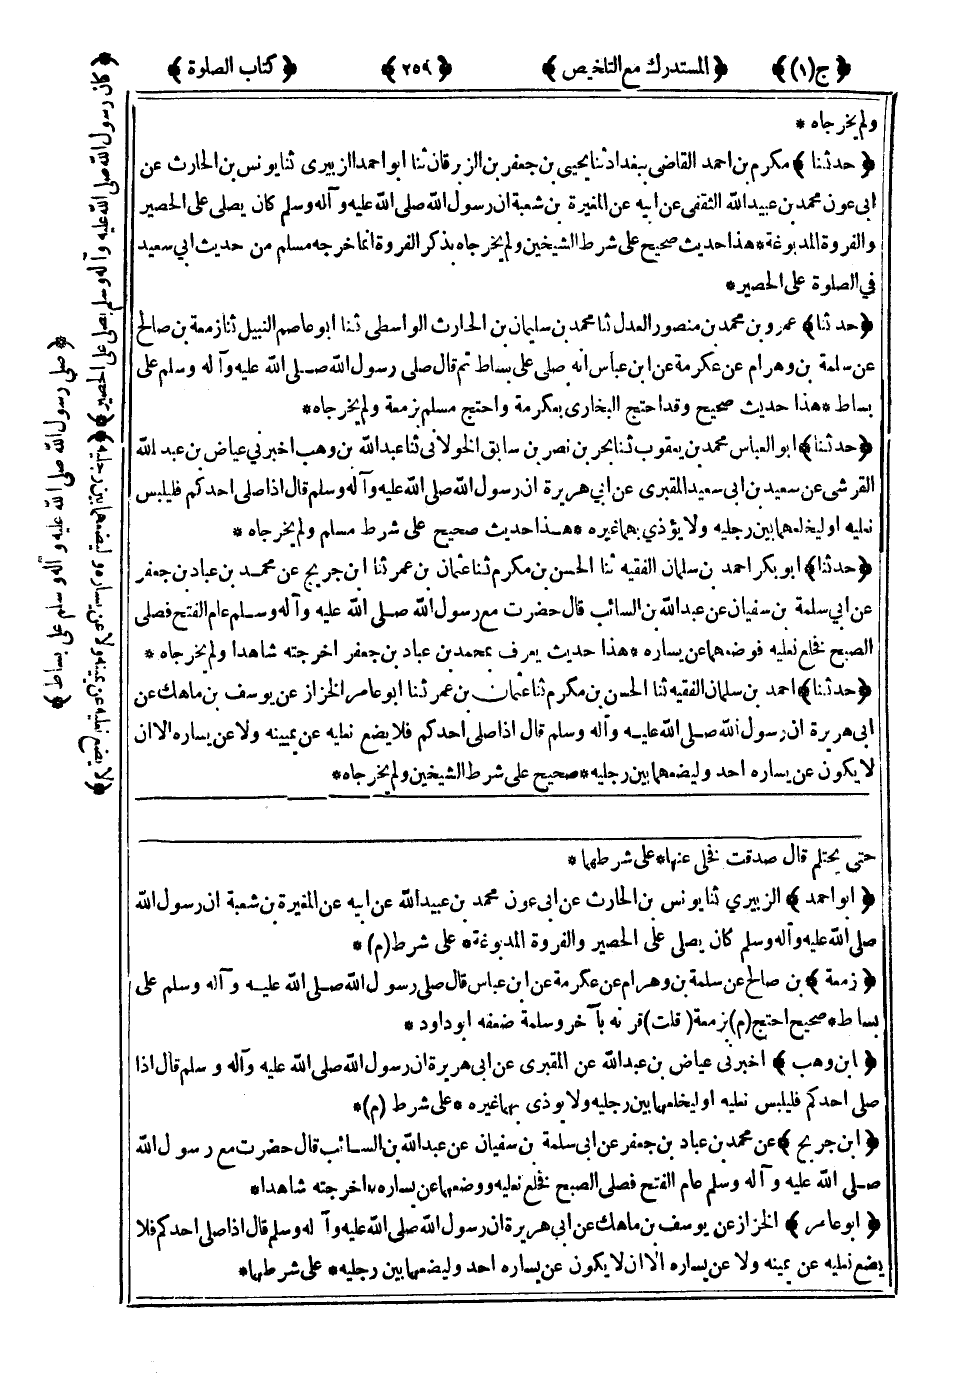 ﴿ ج(١) ﴾ ﴿ المستدرك مع التلخيص ﴾ ﴿ ٢٥٩ ﴾ ﴿ كتاب الصلوة ﴾
ولم يخرجاه *
﴿ حدثنا ﴾ مكرم بن احمد القاضى ببغداد ثنا يحيى بن جعفر بن الزبرقان ثنا ابو احمد الزبيرى ثنا يونس بن الحارث عن
ابى عون محمد بن عبيد الله الثقفى عن ابيه عن المغيرة بن شعبة ان رسول الله صلى الله عليه و آله وسلم كان يصلى على الحصير
والفروة المدبوغة * هذا حديث صحيح على شرط الشيخين ولم يخرجاه بذكر الفروة انما خرجه مسلم من حديث ابي سعيد
في الصلوة على الحصير *
﴿ حدثنا ﴾ عمرو بن محمد بن منصور العدل ثنا محمد بن سليمان بن الحارث الواسطى ثنا ابو عاصم النبيل ثنا زمعة بن صالح
عن سلمة بن وهرام عن عكرمة عن ابن عباس انه صلى على بساط ثم قال صلى رسول الله صلى الله عليه وآله وسلم على
بساط * هذا حديث صحيح وقد احتج البخارى بعكرمة واحتج مسلم بزمعة ولم يخرجاه *
﴿ حدثنا ﴾ ابو العباس محمد بن يعقوب ثنا بحر بن نصر بن سابق الخولانى ثنا عبد الله بن وهب اخبرني عياض بن عبد الله
القرشى عن سعيد بن ابى سعيد المقبرى عن ابي هريرة ان رسول الله صلى الله عليه وآله وسلم قال اذا صلى احدكم فليلبس
نعليه او ليخلعهما بين رجليه ولا يؤذي بهما غيره * هذا حديث صحيح على شرط مسلم ولم يخرجاه *
﴿ حدثنا ﴾ ابو بكر احمد بن سلمان الفقيه ثنا الحسن بن مكرم ثنا عثمان بن عمر ثنا ابن جريج عن محمد بن عباد بن جعفر
عن ابي سلمة بن سفيان عن عبد الله بن السائب قال حضرت مع رسول الله صلى الله عليه وآله وسلم عام الفتح فصلى
الصبح فخلع نعليه فوضعهما عن يساره * هذا حديث يعرف بمحمد بن عباد بن جعفر اخرجته شاهدا ولم يخرجاه *
﴿ حدثنا ﴾ احمد بن سلمان الفقيه ثنا الحسن بن مكرم ثنا عثمان بن عمر ثنا ابو عامر الخزاز عن يوسف بن ماهك عن
ابى هريرة ان رسول الله صلى الله عليه وآله وسلم قال اذا صلى احدكم فلا يضع نعليه عن يمينه ولا عن يساره الا ان
لا يكون عن يساره احد وليضعهما بين رجليه * صحيح على شرط الشيخين ولم يخرجاه *
حتى يحتلم قال صدقت فخلى عنها * على شرطهما *
﴿ ابو احمد ﴾ الزبيري ثنا يونس بن الحارث عن ابى عون محمد بن عبيد الله عن ابيه عن المغيرة بن شعبة ان رسول الله
صلى الله عليه وآله وسلم كان يصلى على الحصير والفروة المدبوغة * على شرط (م) *
﴿ زمعة ﴾ بن صالح عن سلمة بن وهرام عن عكرمة عن ابن عباس قال صلى رسول الله صلى الله عليه وآله وسلم على
بساط * صحيح احتج (م) بزمعة (قلت) قرنه بآخر وسلمة ضعفه ابو داود *
﴿ ابن وهب ﴾ اخبرنى عياض بن عبد الله عن المقبرى عن ابى هريرة ان رسول الله صلى الله عليه وآله وسلم قال اذا
صلى احدكم فليلبس نعليه او ليخلعهما بين رجليه ولا يوذى بهما غيره * على شرط (م) *
﴿ ابن جريج ﴾ عن محمد بن عباد بن جعفر عن ابى سلمة بن سفيان عن عبد الله بن السائب قال حضرت مع رسول الله
صلى الله عليه وآله وسلم عام الفتح فصلى الصبح فخلع نعليه ووضعهما عن يساره * اخرجته شاهدا *
﴿ ابو عامر ﴾ الخزاز عن يوسف بن ماهك عن ابى هريرة ان رسول الله صلى الله عليه وآله وسلم قال اذا صلى احدكم فلا
يضع نعليه عن يمينه ولا عن يساره الا ان لا يكون عن يساره احد وليضعهما بين رجليه * على شرطهما *
﴿ كان رسول الله صلى الله عليه وآله وسلم يصلى على الحصير ﴾ ﴿ لا يضع نعليه عن يمينه ولا عن يساره وليضعهما بين رجليه ﴾
﴿ صلى رسول الله صلى الله عليه وآله وسلم على بساط ﴾